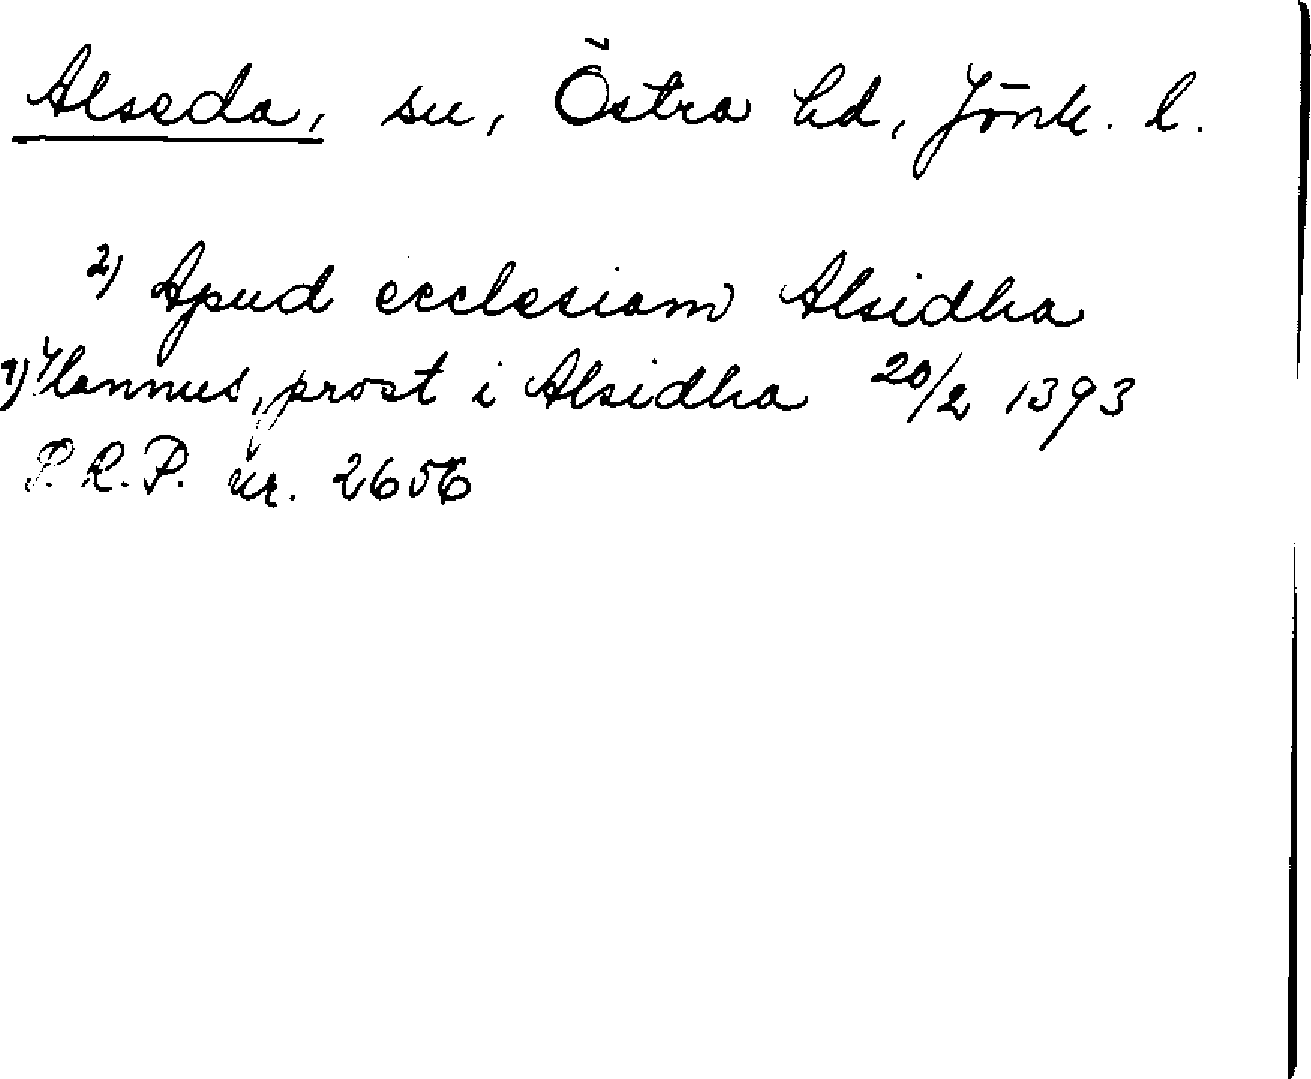 Alseda, sn, Östra hd, Jönk. l.
2) Apud ecclesiam Alsidha
1) Hannus, prost i Alsidha 20/2 1393
P.R.P. nr. 2656